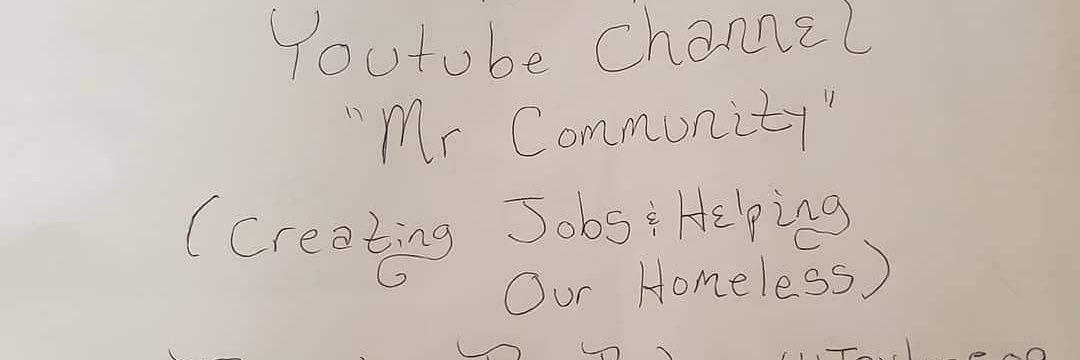 Youtube Channel
"Mr Community"
(Creating Jobs & Helping
Our Homeless)